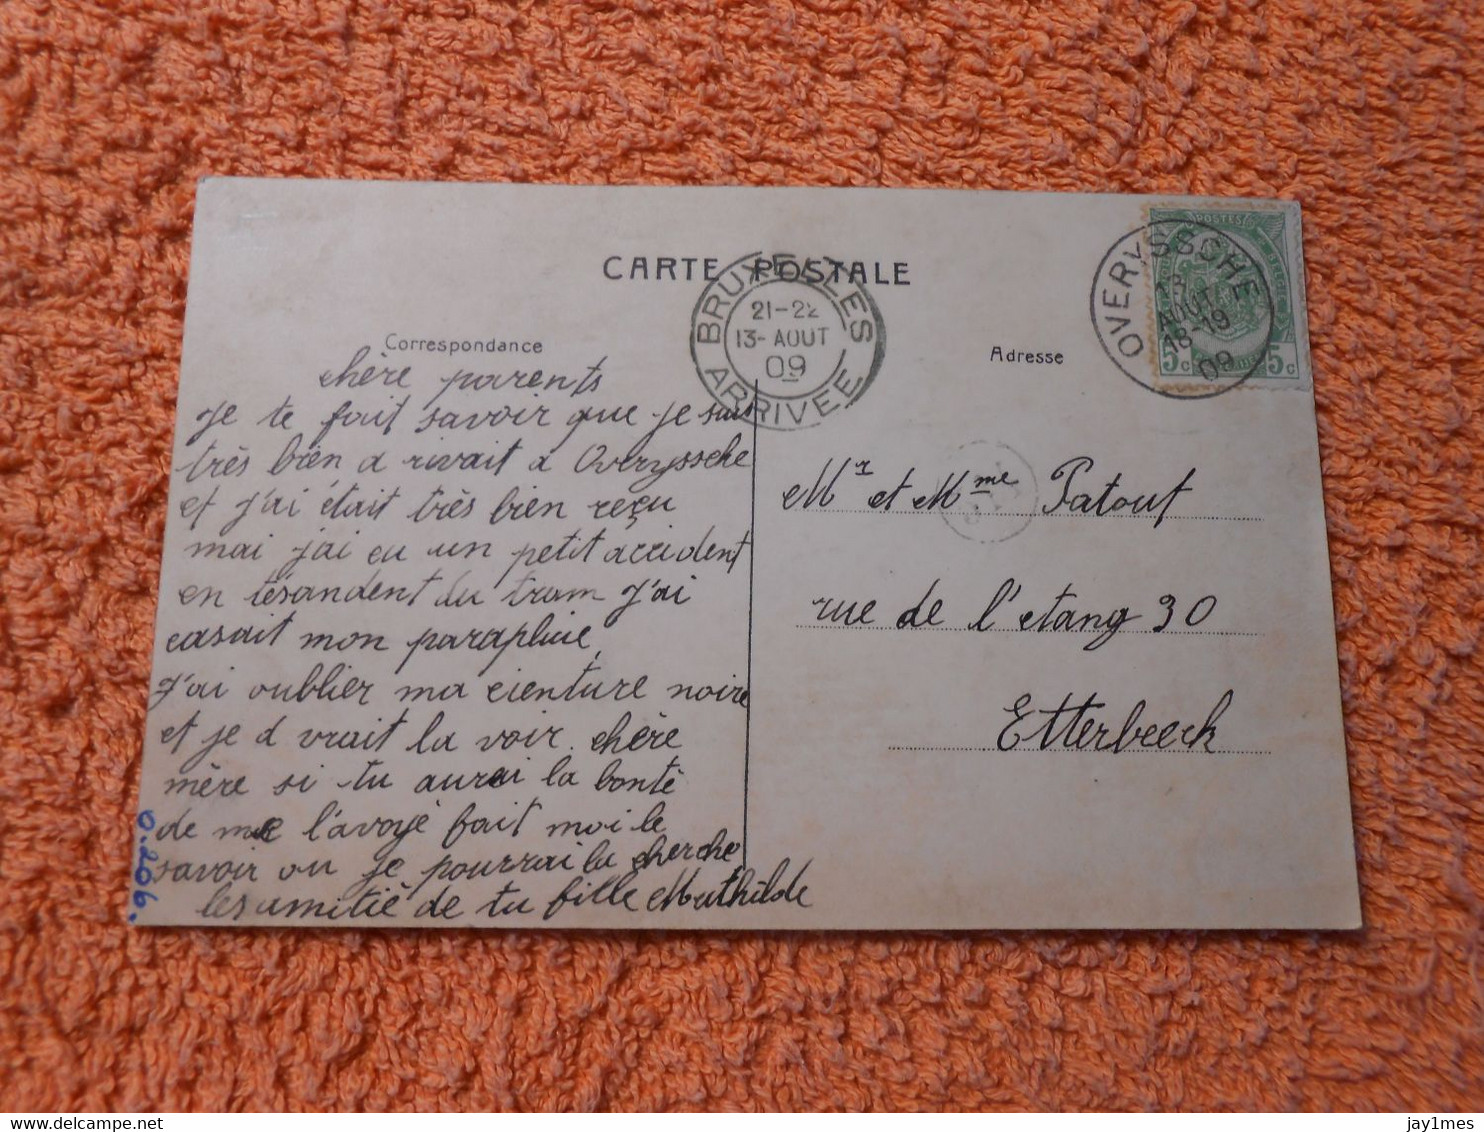 CARTE POSTALE
BRUXELLES
21-22
13-AOUT
09
ARRIVEE
OVERYSSCHE
13
AOUT
18-19
09
POSTES
5c 5c
Correspondance
Adresse
chère parents
je te fait savoir que je suis
très bien a rivait a Overyssche
et j'ai était très bien reçu
mai j'ai eu un petit accident
en tésandent du tram j'ai
casait mon parapluie
j'ai oublier ma cienture noire
et je d vrait la voir. chère
mère si tu aurai la bonté
de me l'avoyé fait moi le
savoir ou je pourrai la cherché
les amitié de tu fille Mathilde
0.206.
Mr et Mme Patout
rue de l'etang 30
Etterbeeck
jay1mes